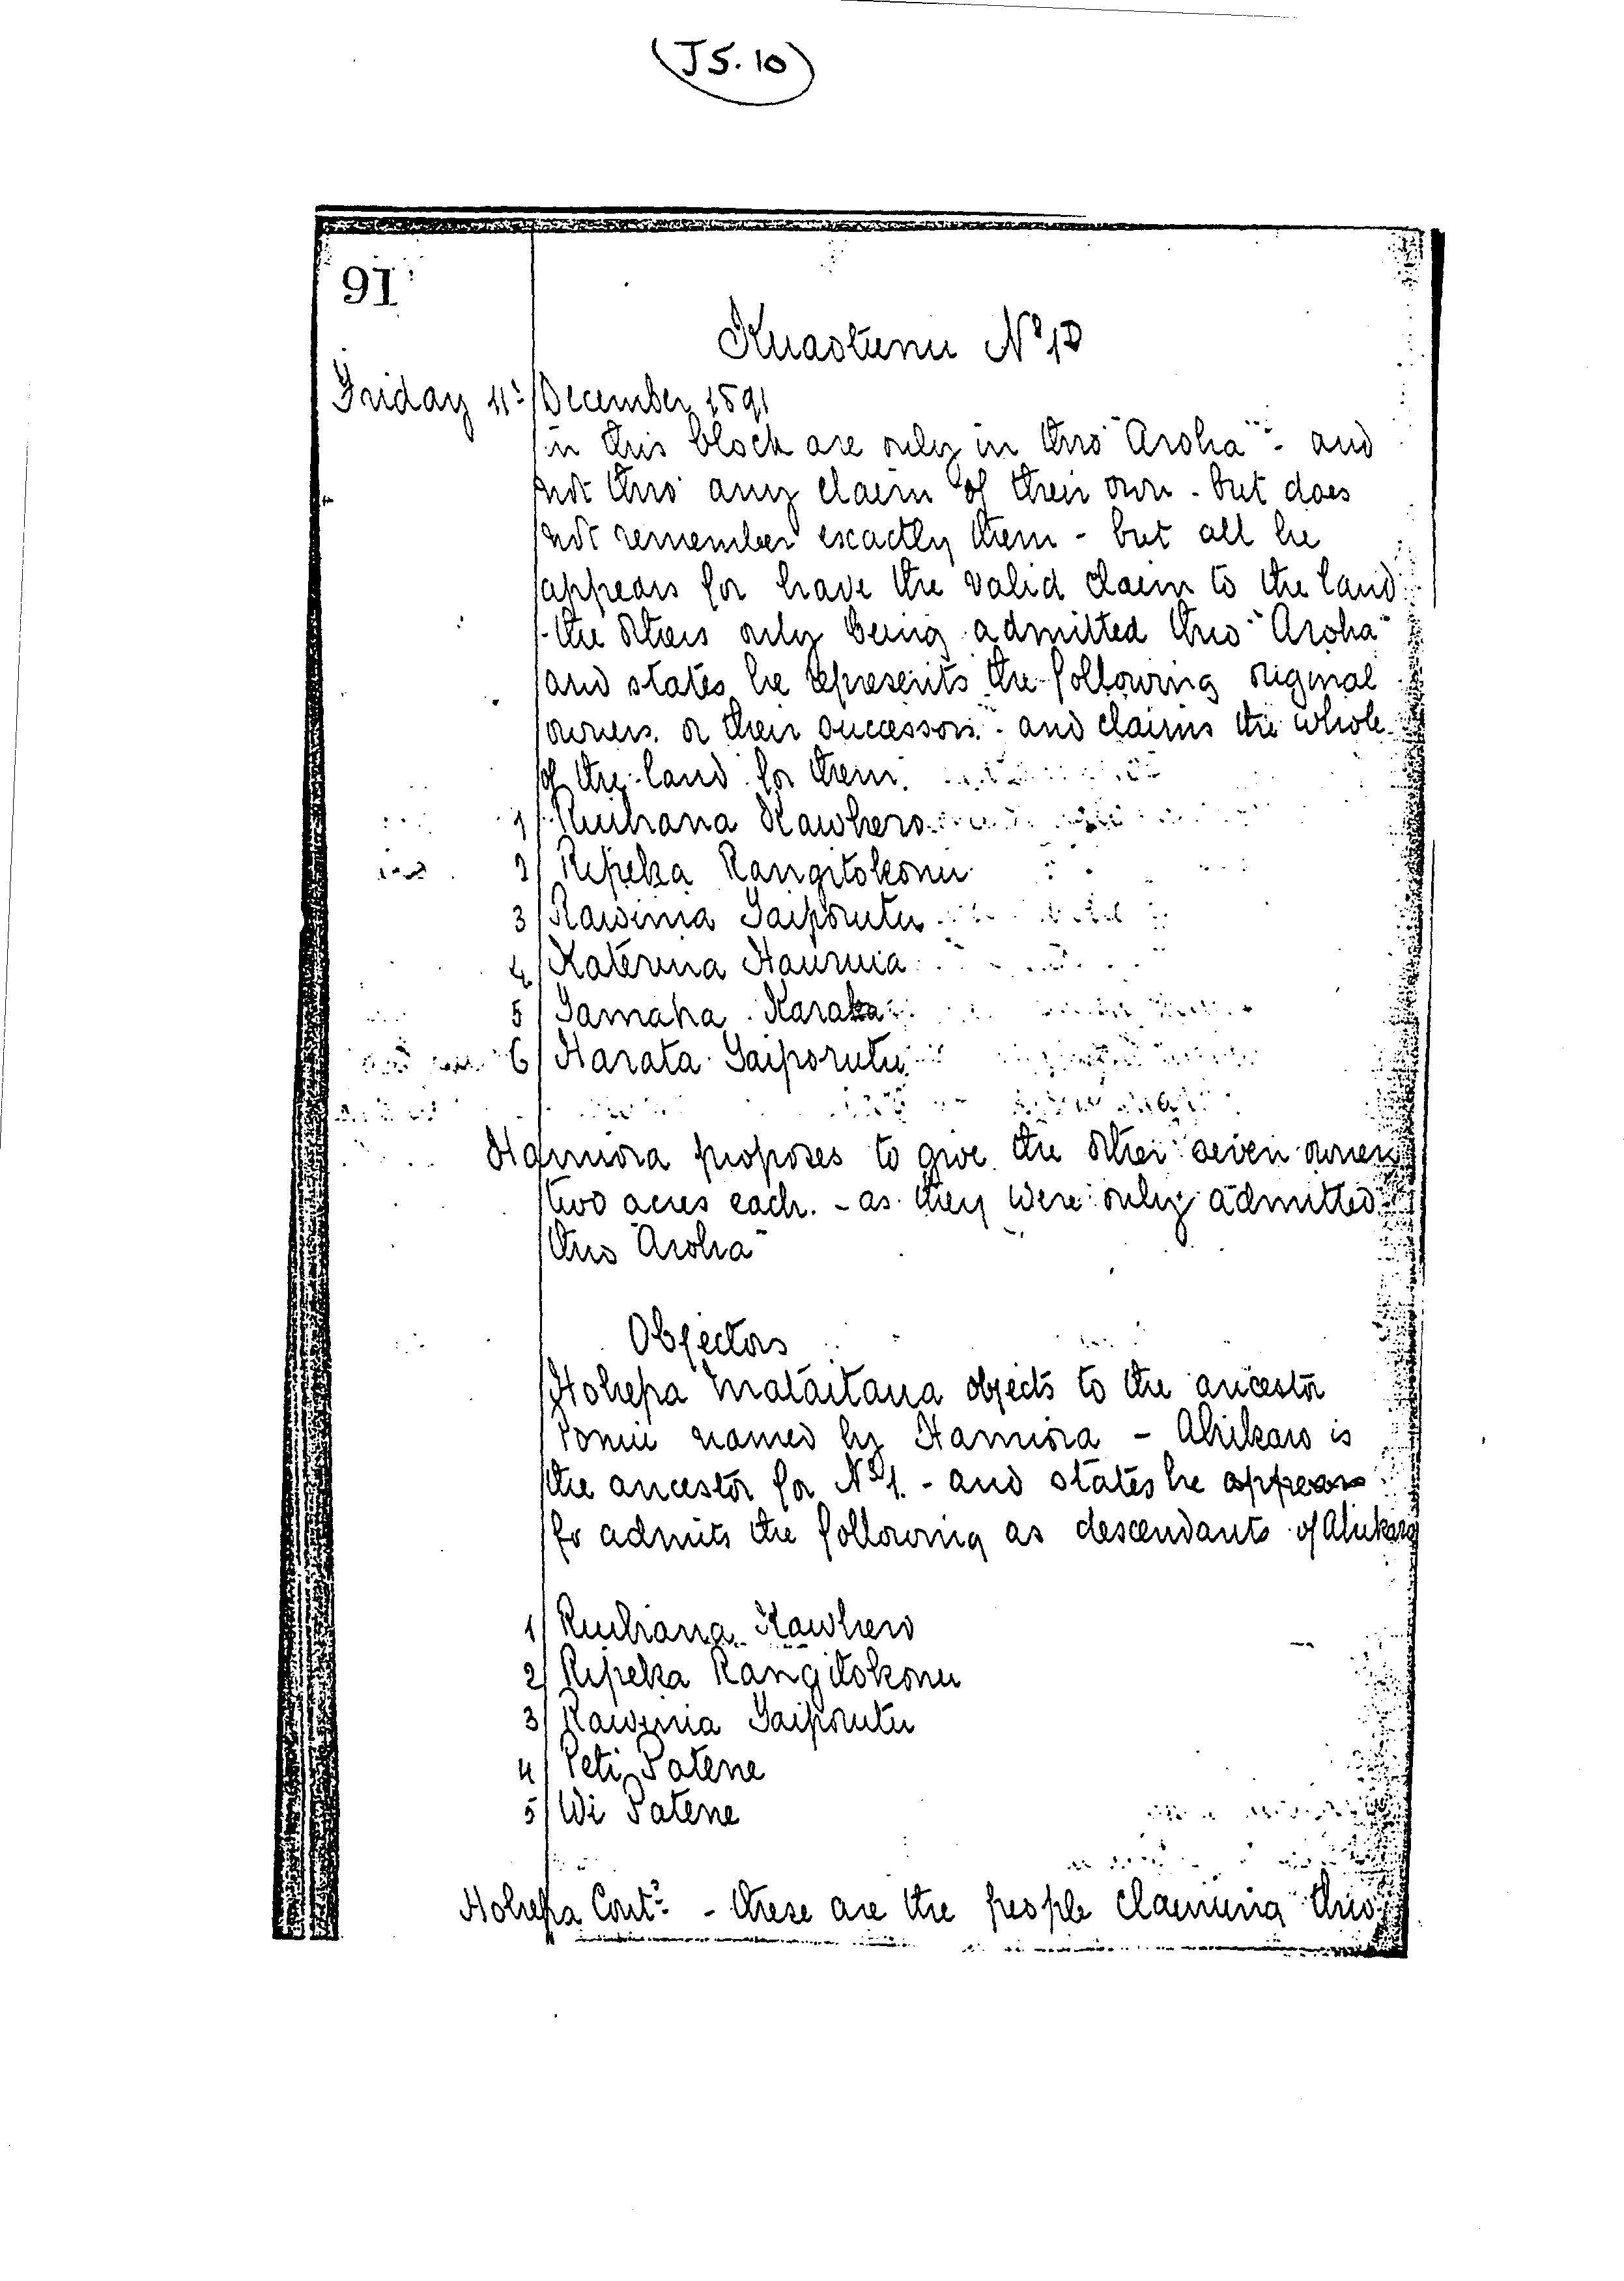 (JS.10)
91
Kuaotunu No 1D
Friday 11th December 1891
in this block are only in thro "Aroha" - and
not thro any claim of their own - but does
not remember exactly them - but all he
appears for have the valid claim to the land
- the others only being admitted thro "Aroha"
and states he represents the following original
owners or their successors - and claims the whole
of the land for them.
1/ Ruihana Kawhero
2/ Ripeka Rangitokonu
3/ Rawinia Taiporutu
4/ Katerina Hauruia
5/ Tamaha Karaka
6/ Harata Taiporutu
Hamiora proposes to give the other seven owners
two acres each. - as they were only admitted
thro "Aroha"
Objectors
Hohepa Mataitaua objects to the ancestor
named by Hamiora - Ahikaro is
the ancestor for No 1. - and states he appears
for admits the following as descendants of Ahikaro
1/ Ruihana Kawhero
2/ Ripeka Rangitokonu
3/ Rawinia Taiporutu
4/ Peti Patene
5/ Wi Patene
Hohepa Contd - these are the people claiming thro